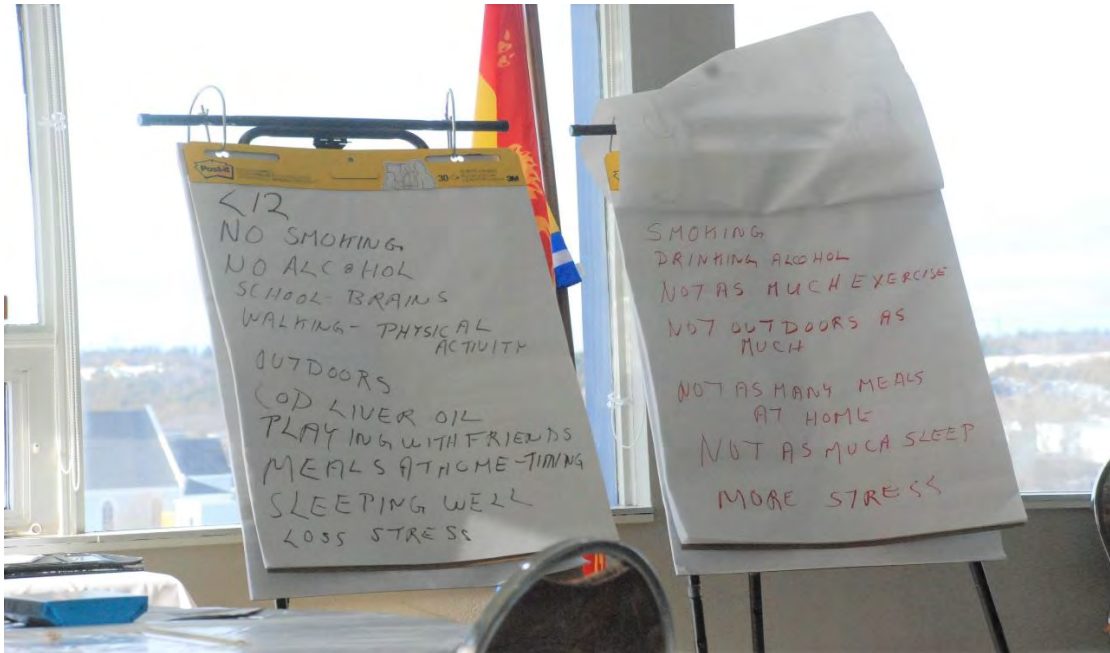 Post-it
30
3M
<12
NO SMOKING
NO ALCOHOL
SCHOOL - BRAINS
WALKING - PHYSICAL
ACTIVITY
OUTDOORS
COD LIVER OIL
PLAYING WITH FRIENDS
MEALS AT HOME - TIMING
SLEEPING WELL
LOSS STRESS
SMOKING
DRINKING ALCOHOL
NOT AS MUCH EXERCISE
NOT OUTDOORS AS
MUCH
NOT AS MANY MEALS
AT HOME
NOT AS MUCH SLEEP
MORE STRESS